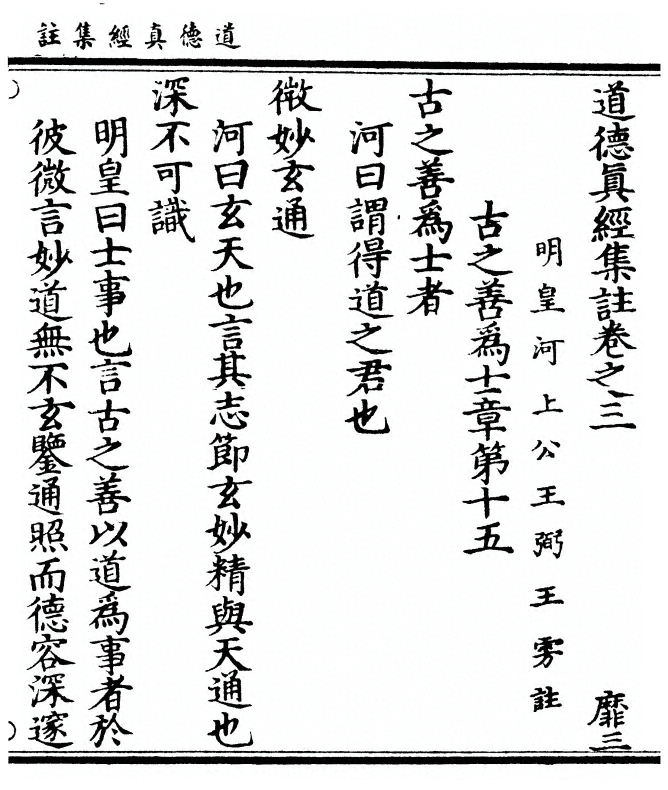 道德真經集註
道德眞經集註卷之三 靡三
明皇河上公王弼王雱註
古之善爲士章第十五
古之善爲士者
河曰謂得道之君也
微妙玄通
河曰玄天也言其志節玄妙精與天通也
深不可識
明皇曰士事也言古之善以道爲事者於
彼微言妙道無不玄鑒通照而德容深邃